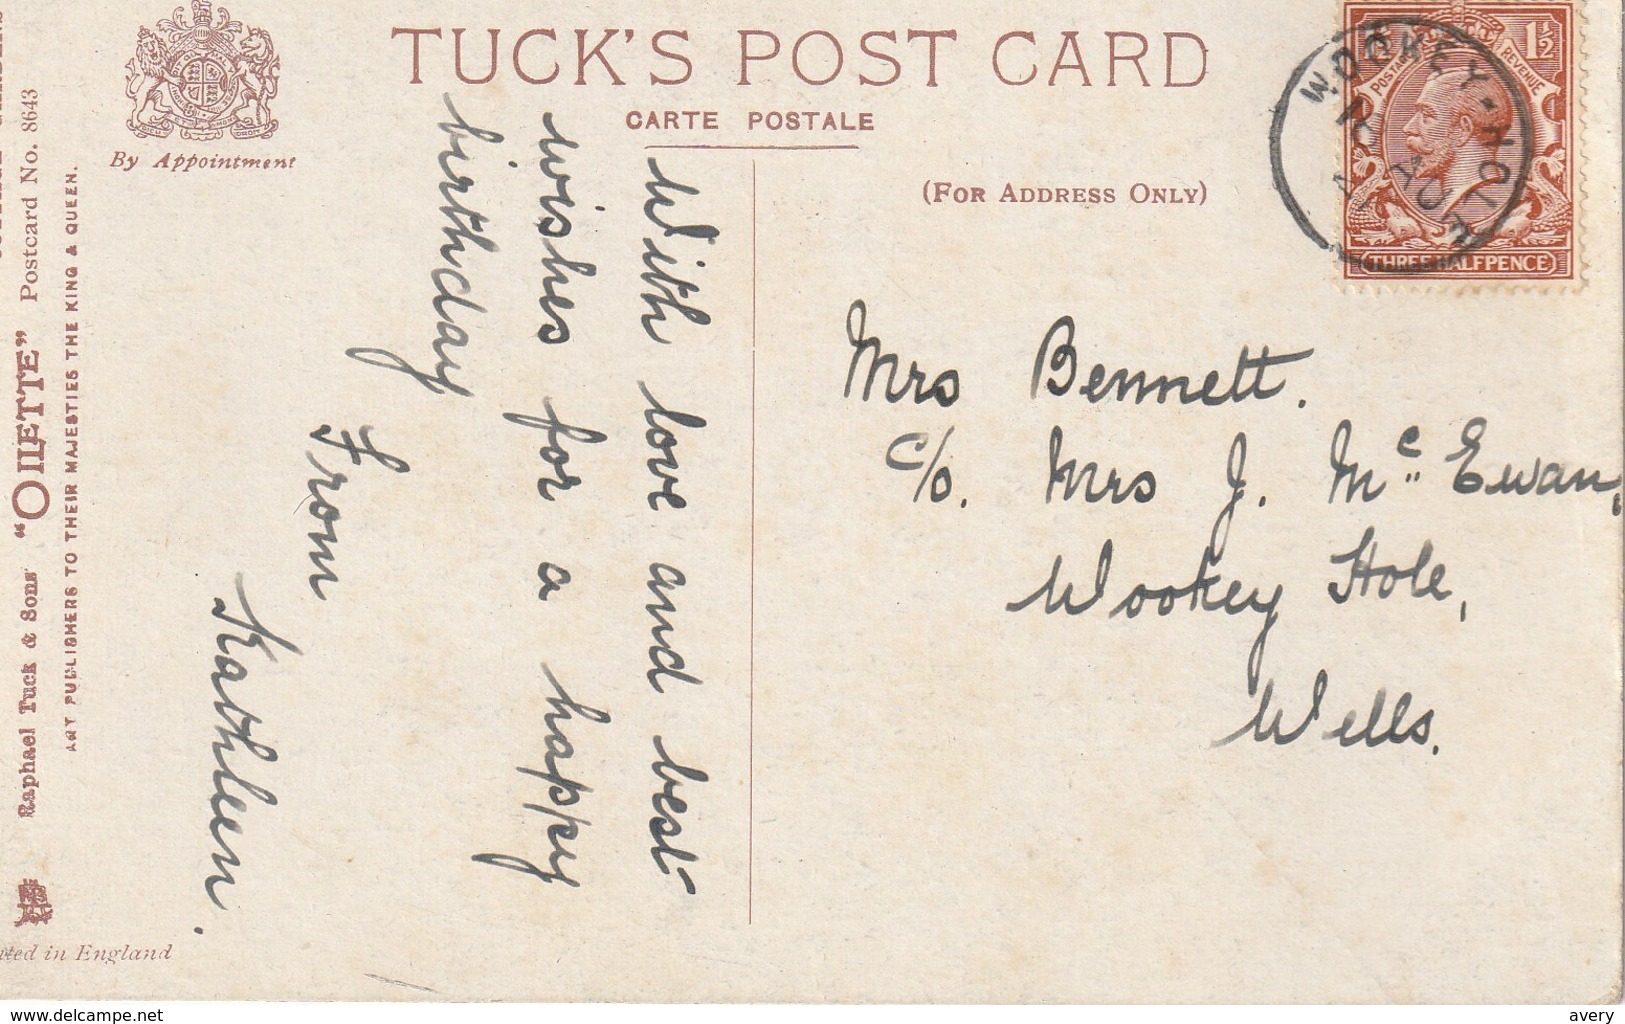 TUCK'S POST CARD
CARTE POSTALE
(FOR ADDRESS ONLY)
By Appointment
Postcard No. 8643
Raphael Tuck & Sons' "OILETTE"
ART PUBLISHERS TO THEIR MAJESTIES THE KING & QUEEN.
in England
With love and best
wishes for a happy
birthday
From
Kathleen.
WOOKEY-HOLE
AU
POSTAGE
REVENUE
1½
THREE HALFPENCE
Mrs Bennett.
c/o. Mrs J. McEwan,
Wookey Hole,
Wells.
www.delcampe.net
avery